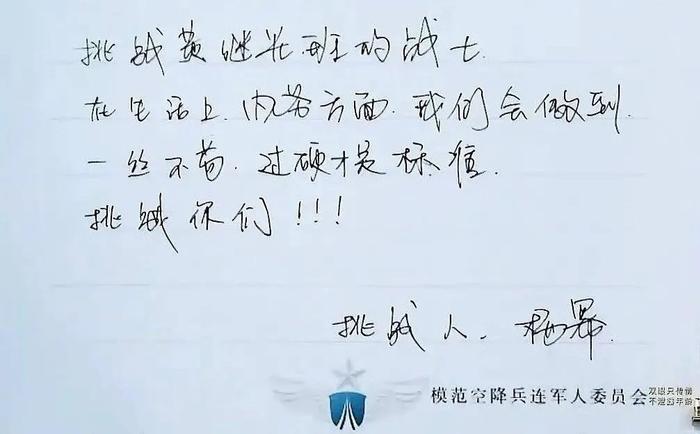 挑战黄继光班的战士
在生活上、内务方面、我们会做到
一丝不苟、过硬才是标准
挑战你们!!!
挑战人、杨幂
模范空降兵连军人委员会
双眼只传情
不泄露年龄